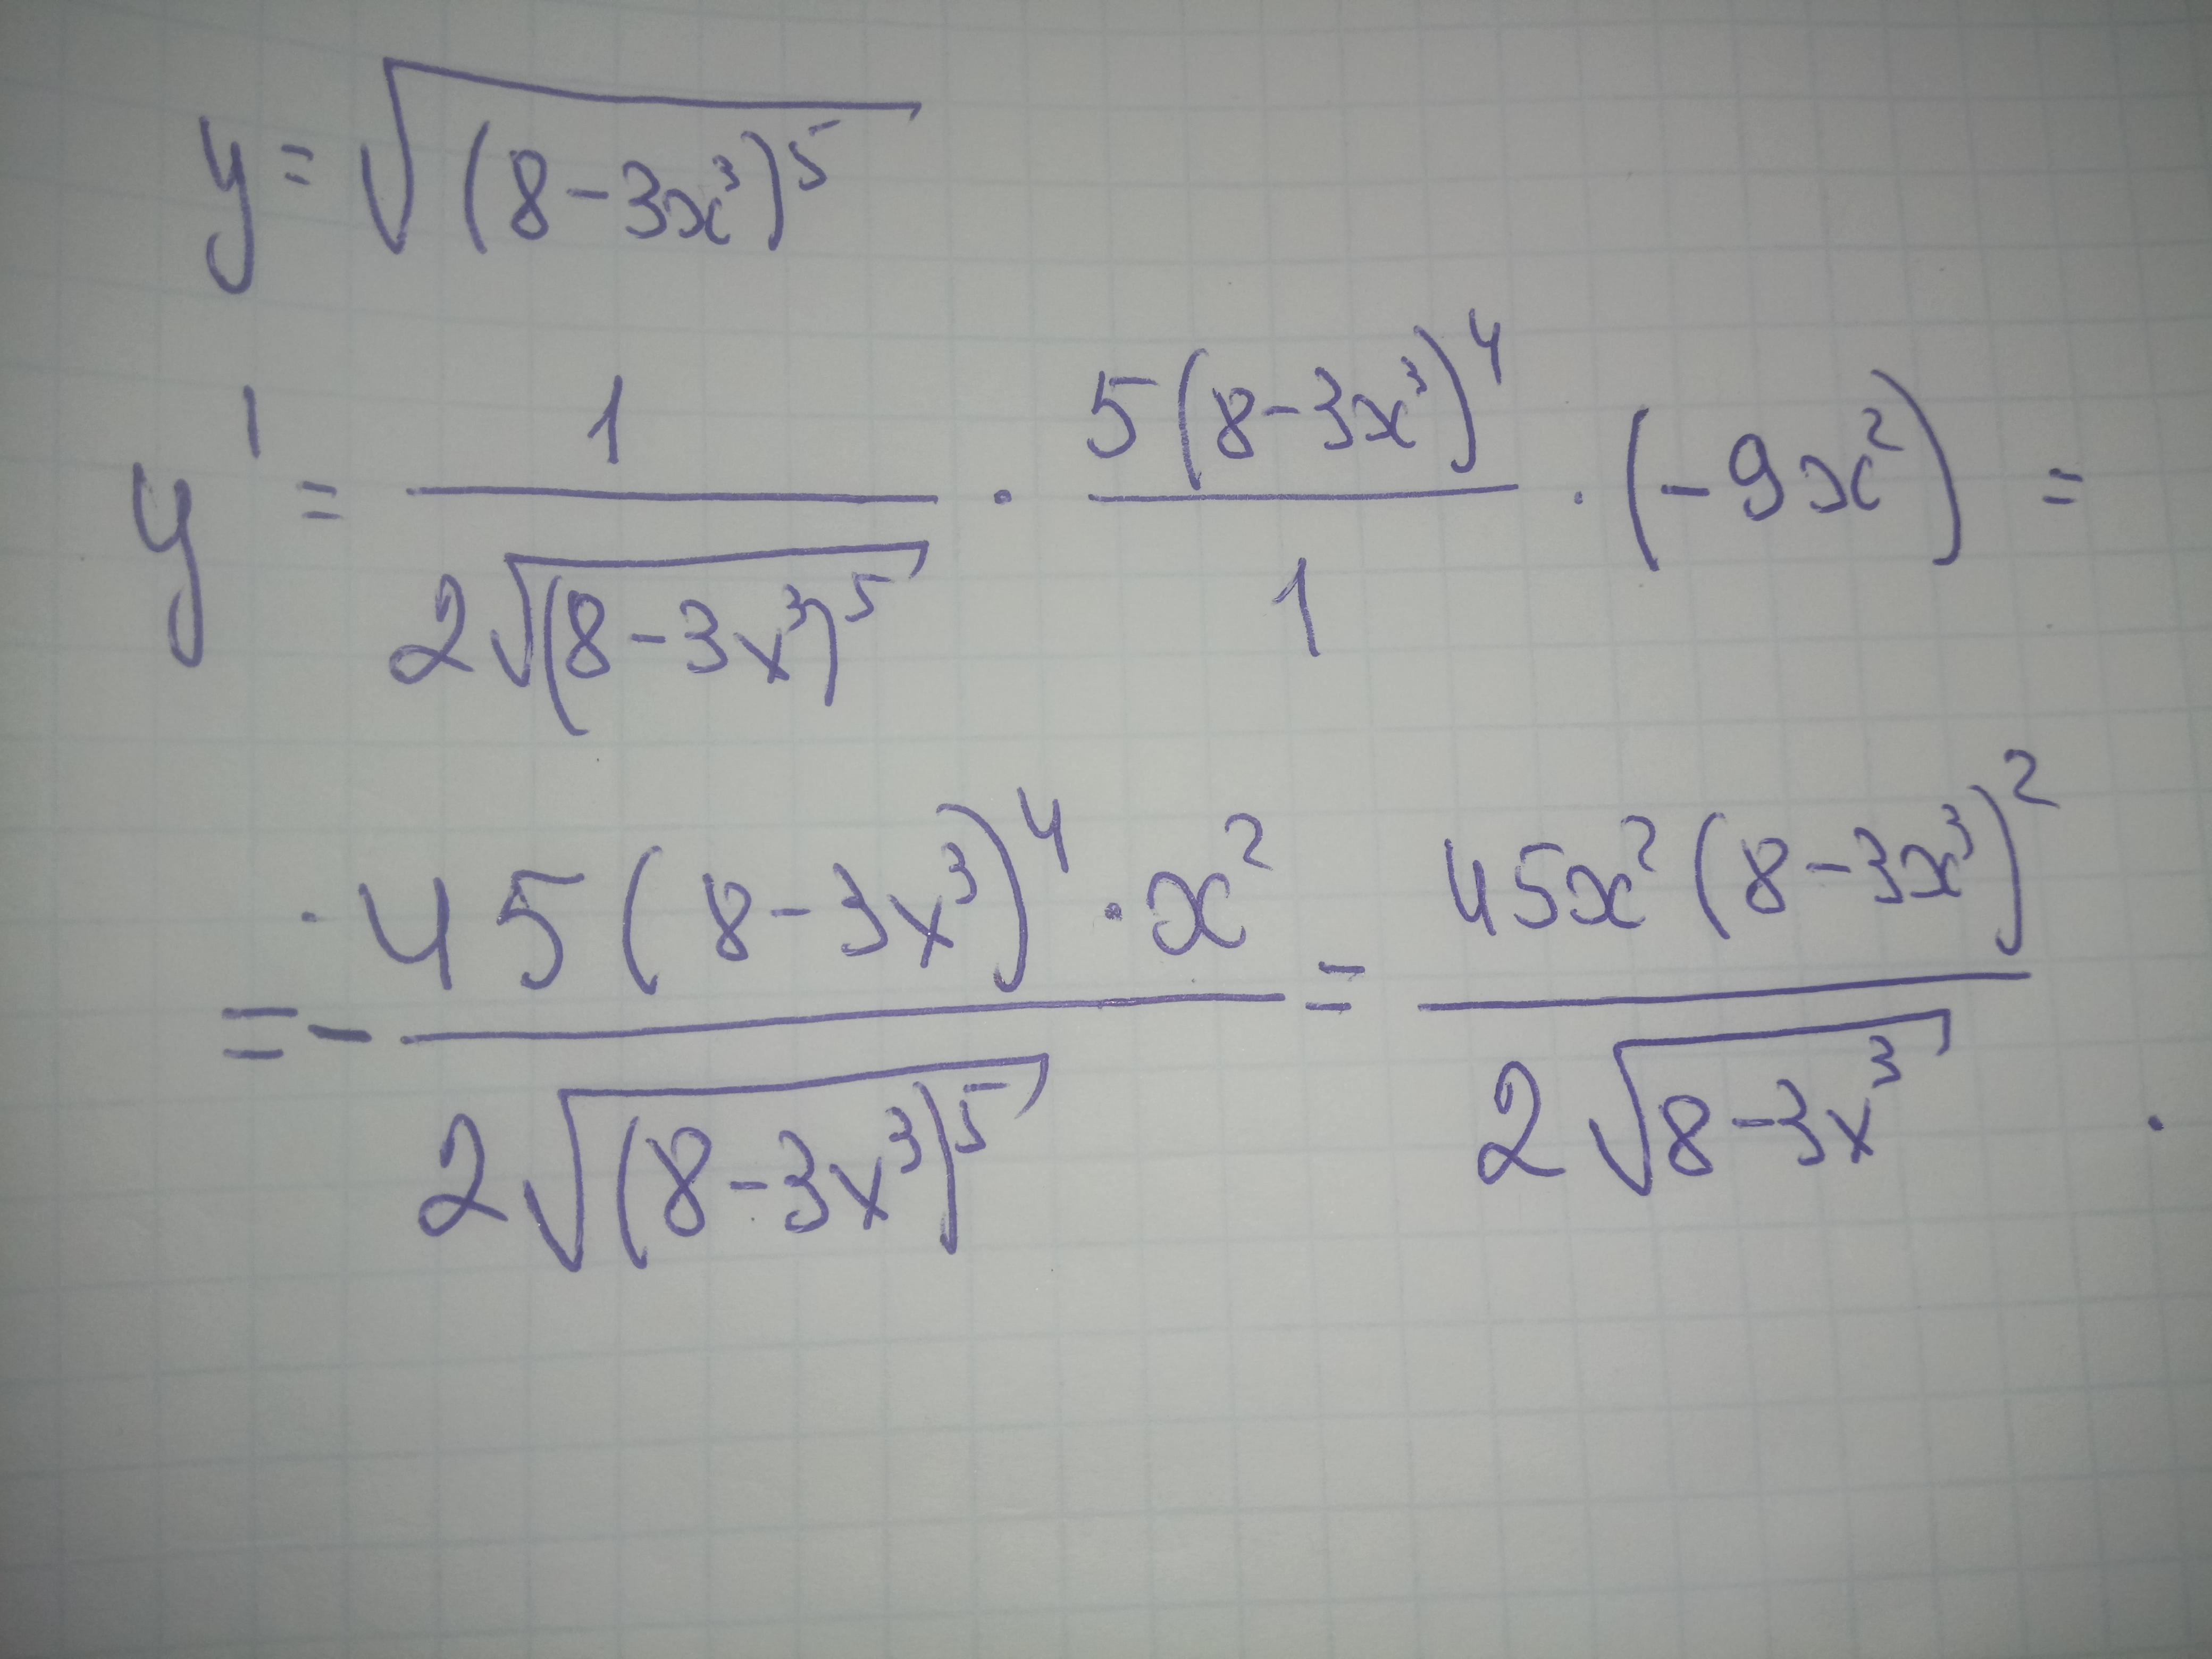 y = √(8-3x³)⁵
y' = 1/(2√(8-3x³)⁵) · 5(8-3x³)⁴/1 · (-9x²) =
= - 45(8-3x³)⁴ · x²/(2√(8-3x³)⁵) = 45x²(8-3x³)²/(2√8-3x³) .